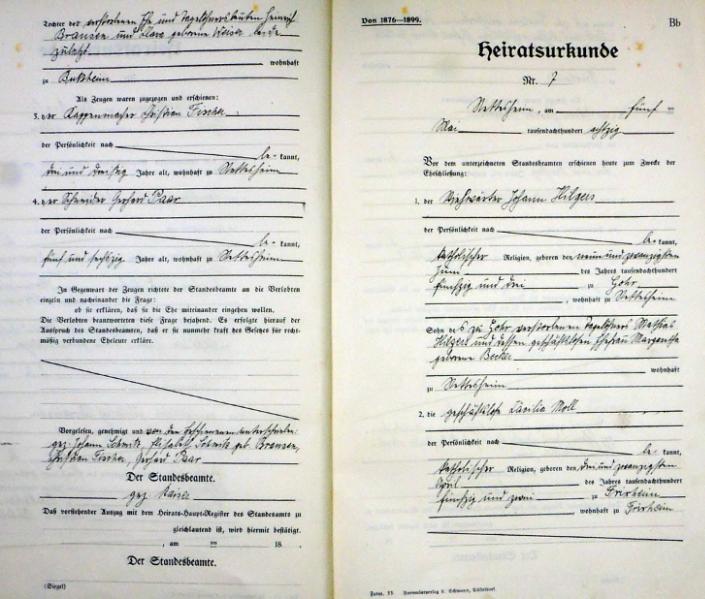 Tochter des verstorbenen Ehe und Tagelöhnersleuten Heinrich
Bransen und Clara geborene Weiser, beide
zuletzt
wohnhaft
zu Butzheim
Als Zeugen waren zugezogen und erschienen:
3. der Kappenmacher Christian Fischer
der Persönlichkeit nach
be- kannt,
drei und dreißig Jahre alt, wohnhaft zu Nettesheim
4. der Schneider Gerhard Paar
der Persönlichkeit nach
be- kannt,
fünf und sechzig Jahre alt, wohnhaft zu Nettesheim
In Gegenwart der Zeugen richtete der Standesbeamte an die Verlobten
einzeln und nacheinander die Frage:
ob sie erklären, daß sie die Ehe miteinander eingehen wollen.
Die Verlobten beantworteten diese Frage bejahend. Es erfolgte hierauf der
Ausspruch des Standesbeamten, daß er sie nunmehr kraft des Gesetzes für recht-
mäßig verbundene Eheleute erkläre.
Vorgelesen, genehmigt und von den Erschienenen unterschrieben:
gez. Johann Schmitz, Elisabeth Schmitz geb. Bransen,
Christian Fischer, Gerhard Paar
Der Standesbeamte.
gez.
Daß vorstehender Auszug mit dem Heirats-Haupt-Register des Standesamts zu
gleichlautend ist, wird hiermit bestätigt.
, am 18
Der Standesbeamte.
(Siegel)
Von 1876—1899.
Bb
Heiratsurkunde
Nr. 7
Nettesheim, am fünf
Mai tausendachthundert achtzig
Vor dem unterzeichneten Standesbeamten erschienen heute zum Zwecke der
Eheschließung:
1. der Viehwärter Johann Hilgers
der Persönlichkeit nach
be- kannt,
katholischer Religion, geboren den neun und zwanzigsten
Juni des Jahres tausendachthundert
fünfzig und drei zu Gohr
, wohnhaft zu Nettesheim
Sohn des zu Gohr verstorbenen Tagelöhners Mathias
Hilgers und dessen geschäftslosen Ehefrau Margaretha
geborene Becker
wohnhaft
zu Nettesheim
2. die geschäftslose Cäcilia Moll
der Persönlichkeit nach
be- kannt,
katholischer Religion, geboren den drei und zwanzigsten
April des Jahres tausendachthundert
fünfzig und zwei zu Frixheim
wohnhaft zu Frixheim
Form. 15 Formularverlag L. Schwann, Düsseldorf.